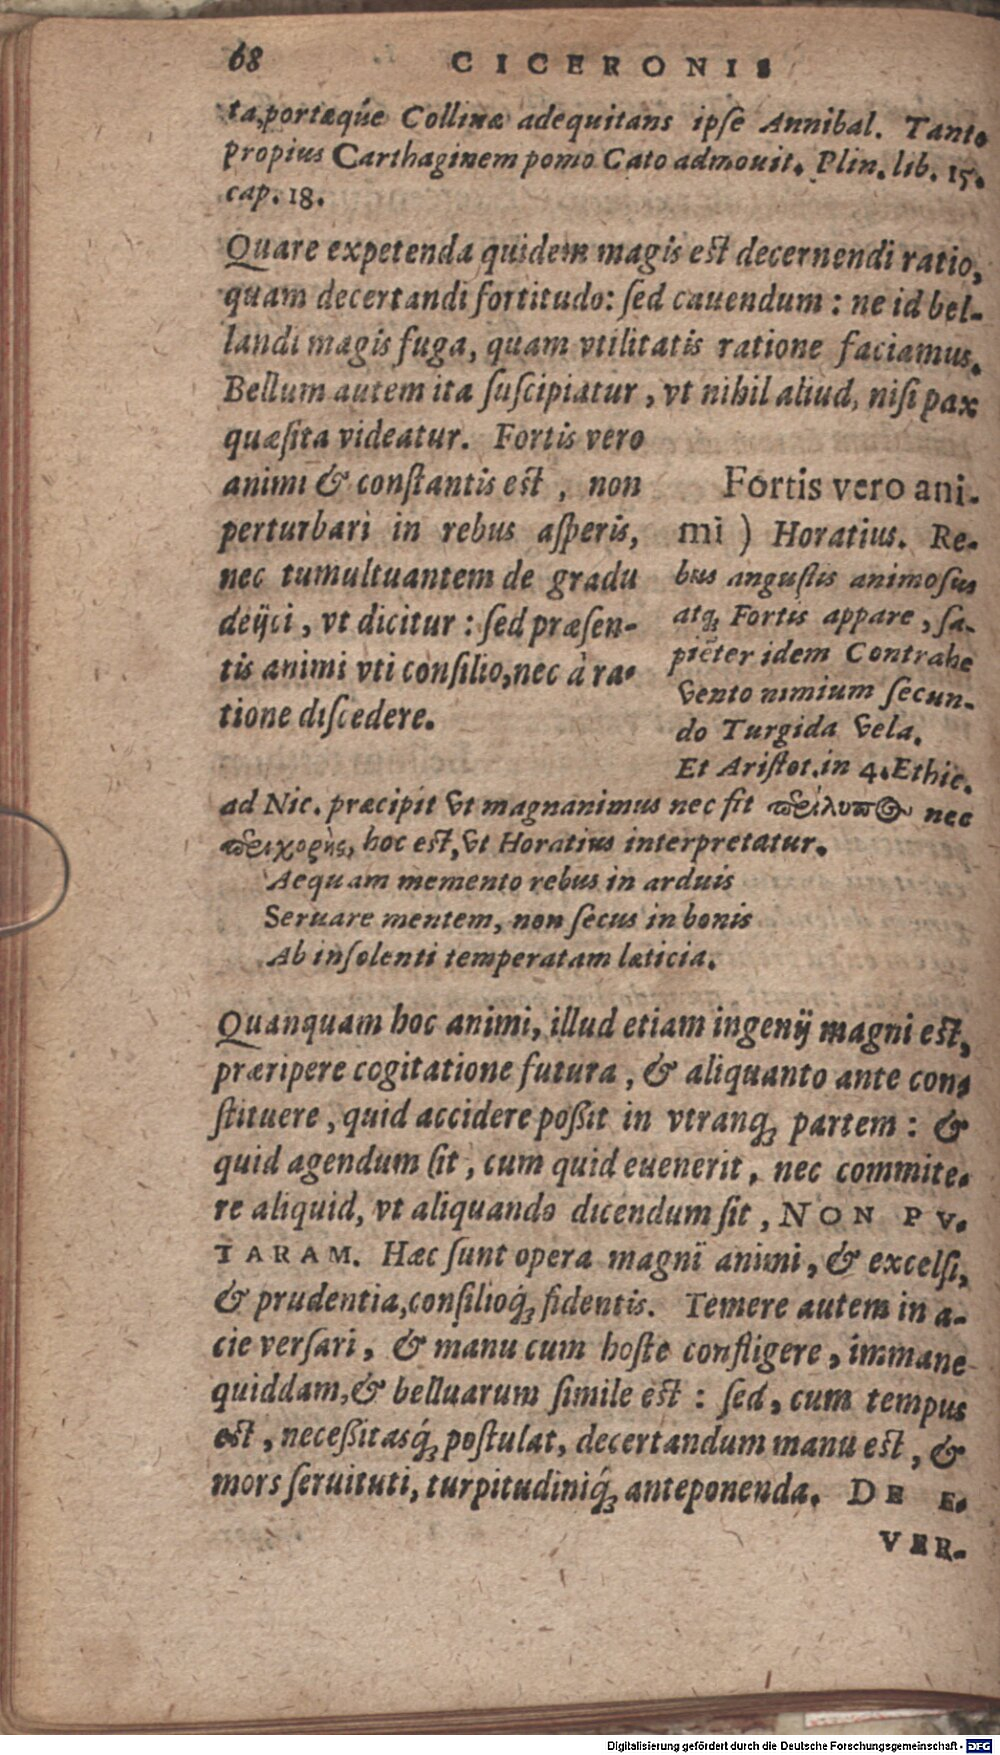 68 CICERONIS
ta, portæqúe Collinæ adequitans ipſe Annibal. Tanto
propius Carthaginem pomo Cato admouit. Plin. lib. 15.
cap. 18.
Quare expetenda quidem magis eſt decernendi ratio,
quam decertandi fortitudo: ſed cauendum: ne id bel-
landi magis fuga, quam vtilitatis ratione faciamus.
Bellum autem ita ſuſcipiatur, vt nihil aliud, niſi pax
quæſita videatur. Fortis vero
animi & conſtantis eſt, non
perturbari in rebus aſperis,
nec tumultuantem de gradu
deijci, vt dicitur: ſed præſen-
tis animi vti conſilio, nec à ra-
tione diſcedere.
Fortis vero ani-
mi) Horatius. Re-
bus anguſtis animoſus
atq; Fortis appare, ſa-
piēter idem Contrahe
vento nimium ſecun-
do Turgida vela.
Et Ariſtot. in 4. Ethic.
ad Nic. præcipit vt magnanimus nec ſit nec
hoc eſt, vt Horatius interpretatur.
Aequam memento rebus in arduis
Seruare mentem, non ſecus in bonis
Ab inſolenti temperatam læticia.
Quanquam hoc animi, illud etiam ingenij magni eſt,
præripere cogitatione futura, & aliquanto ante con-
ſtituere, quid accidere poßit in vtranq; partem: &
quid agendum ſit, cum quid euenerit, nec commite-
re aliquid, vt aliquando dicendum ſit, NON PV-
TARAM. Hæc ſunt opera magni animi, & excelſi,
& prudentia, conſilioq́; fidentis. Temere autem in a-
cie verſari, & manu cum hoſte confligere, immane
quiddam, & belluarum ſimile eſt: ſed, cum tempus
eſt, neceßitasq́; poſtulat, decertandum manu eſt, &
mors ſeruituti, turpitudiniq́; anteponenda. DE E-
VER-
Digitalisierung gefördert durch die Deutsche Forschungsgemeinschaft - DFG